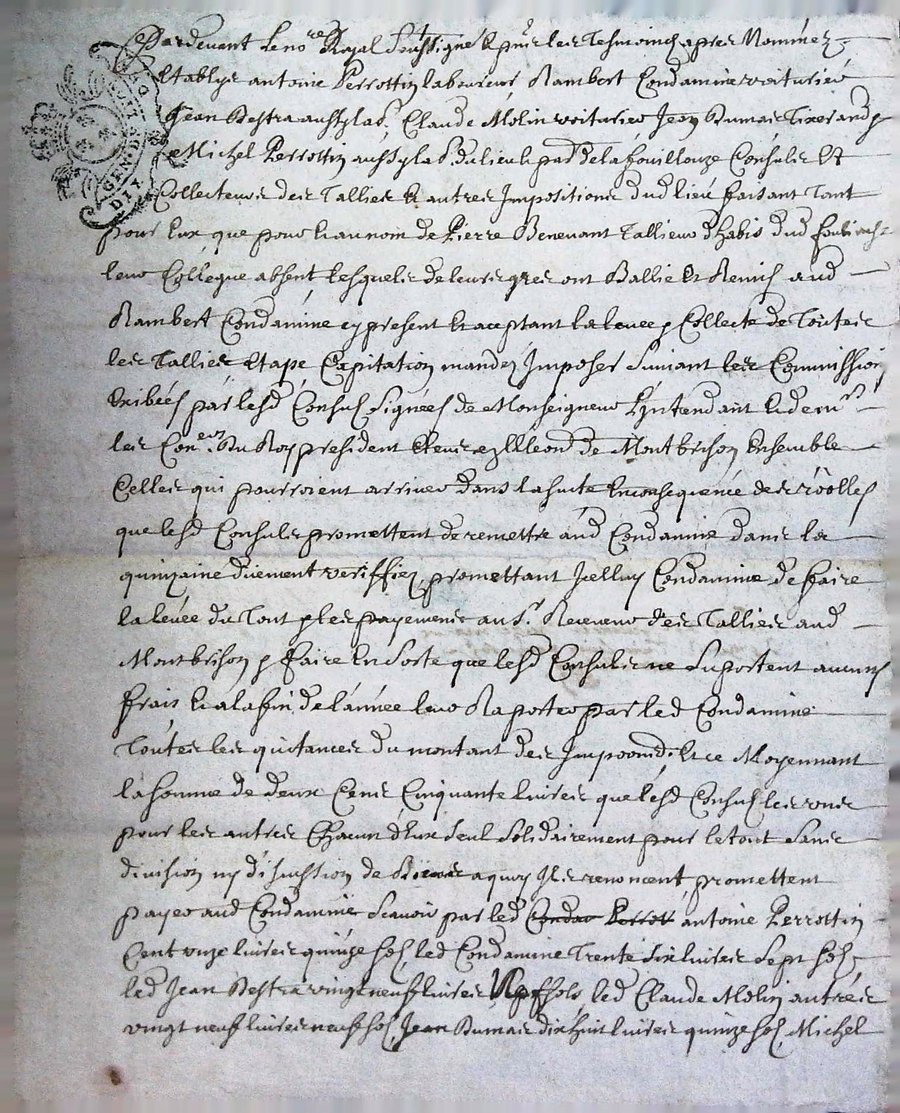 Pardevant le no.re Royal Soussigné & p.nts les Tesmoings apres Nommez
Etablys antoine Perrottin laboureur Rambert Condamine voiturier
Jean aussy lab.r Claude Molin voiturier Jean Dumas Tixerand
& Michel Perrottin aussy lab. du lieu & par. de la fouillouze Consuls Et
Collecteurs des Tallies & autres Impositions dud lieu faisant Tant
pour Eux que pour & au nom de Pierre Benevant Tallieur dhabis dud
leur Collegue absent Lesquels de leurs gres ont Ballié Et Remis aud
Rambert Condamine cy present & aceptant la levee & Collecte de Toutes
les Tallies Etape Capitation mandez Imposer Suivant les Commissions
Exibées par lesd Consuls signées de Monseigneur L'Intendant & de m.rs
les Con.ers Du Roy president & en de Montbrison Ensemble
Celles qui pourroient arriver dans la suite En consequence des roolles
que lesd Consuls promettent de remettre aud Condamine dans la
quinzaine duement veriffiez promettant Icelluy Condamine de faire
la levée du Tout & les payements au S.r Receveur des Tallies aud
Montbrison & faire En sorte que lesd Consuls ne suportent aucuns
frais & a la fin de l'année leur Raporter par led Condamine
Toutes les quitances du montant des Et ce Moyennant
la somme de deux Cens Cinquante livres que lesd Consuls les uns
pour les autres Chacun d'Eux seul solidairement pour le tout sans
division ny discussion de Biens a quoy Ils renoncent promettent
payer aud Condamine Scavoir par led antoine Perrottin
Cent unze livres quinze sols led Condamine Trente six livres sept sols
led Jean vingt neuf livres sols led Claude Molin autres
vingt neuf livres neuf sols Jean Dumas dix huit livres quinze sols Michel